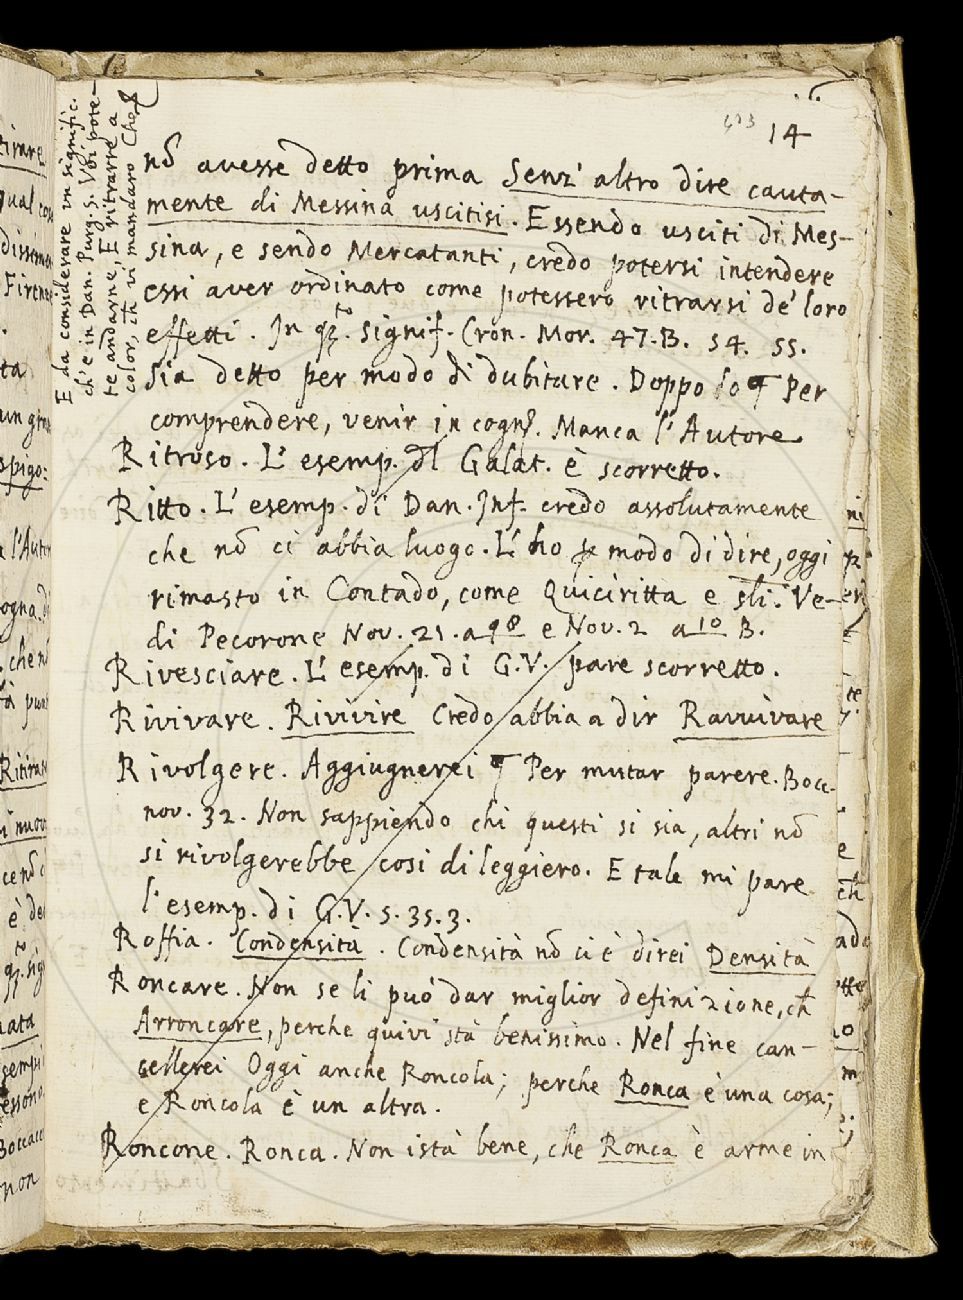 14
E da considerare un signific.
ch'è in Dan. Purg. 5. Voi pote-
te andarne, E ritrarre a
color, ch̃ vi mandaro Che &
nõ avesse detto prima Senz' altro dire cauta-
mente di Messina uscitisi. Essendo usciti di Mes-
sina, e sendo Mercatanti, credo potersi intendere
essi aver ordinato come potessero ritrarsi de' loro
effetti. In q̃to signif. Cron. Mor. 47. B. 54. 55.
Sia detto per modo di dubitare. Doppo lo ¶ Per
comprendere, venir in cogn̄. Manca l'Autore
Ritroso. L' esemp. dl Galat. è scorretto.
Ritto. L' esemp. di Dan. Inf. credo assolutamente
che nõ ci abbia luogo. L' ho p modo di dire, oggi
rimasto in Contado, come Quiciritta e sli. Ve-
di Pecorone Nov. 21. a 98 e Nov. 2 a 10 B.
Rivesciare. L' esemp. di G.V. pare scorretto.
Rivivare. Rivivire Credo abbia a dir Ravvivare
Rivolgere. Aggiugnerei ¶ Per mutar parere. Bocc.
nov. 32. Non sappiendo chi questi si sia, altri nõ
si rivolgerebbe così di leggiero. E tale mi pare
l'esemp. di G.V. 5. 35. 3.
Roffia. Condensità. Condensità nõ ci è direi Densità
Roncare. Non se li può dar miglior definizione, ch̃
Arroncare, perche quivi stà benissimo. Nel fine can-
cellerei Oggi anche Roncola; perche Ronca è una cosa;
e Roncola è un altra.
Roncone. Ronca. Non istà bene, che Ronca è arme in